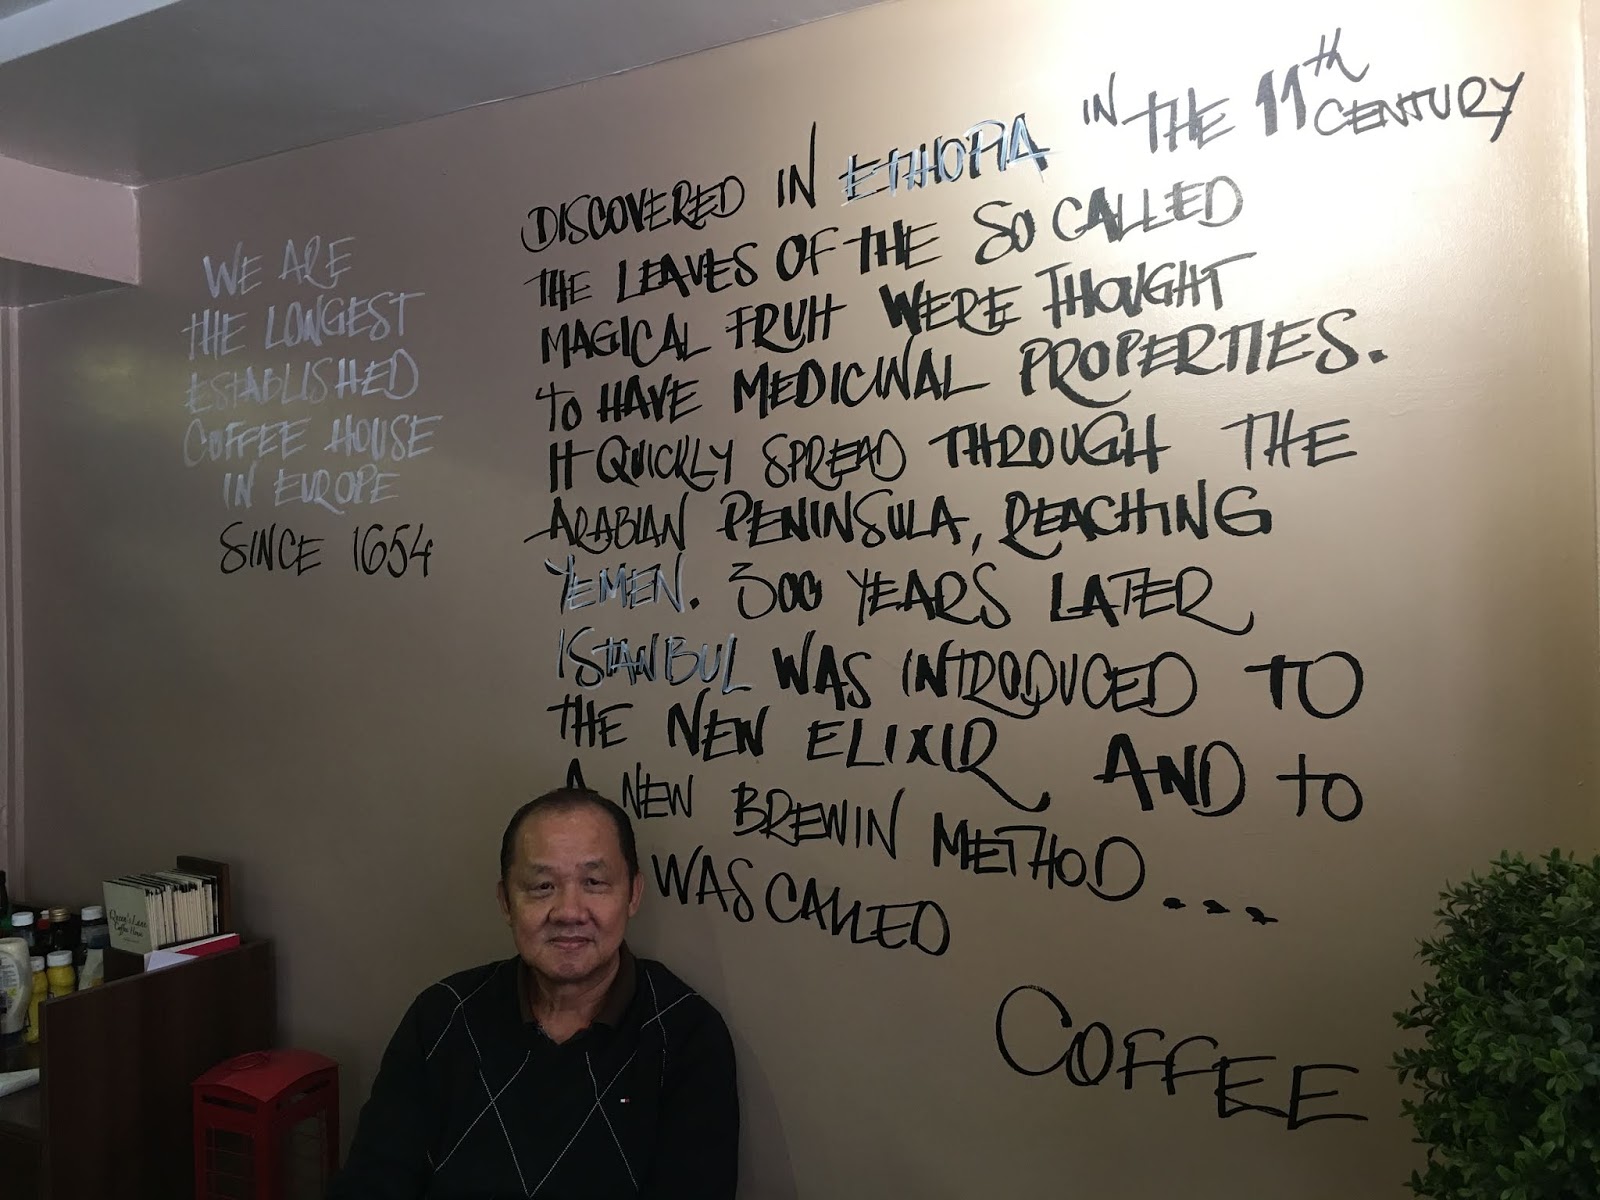 WE ARE
THE LONGEST
ESTABLISHED
COFFEE HOUSE
IN EUROPE
SINCE 1654
DISCOVERED IN ETHIOPIA IN THE 11th CENTURY
THE LEAVES OF THE SO CALLED
MAGICAL FRUIT WERE THOUGHT
TO HAVE MEDICINAL PROPERTIES.
IT QUICKLY SPREAD THROUGH THE
ARABIAN PENINSULA, REACHING
YEMEN. 300 YEARS LATER
ISTANBUL WAS INTRODUCED TO
THE NEW ELIXIR AND TO
A NEW BREWIN METHOD...
WAS CALLED
COFFEE
Queen's Lane
Coffee House